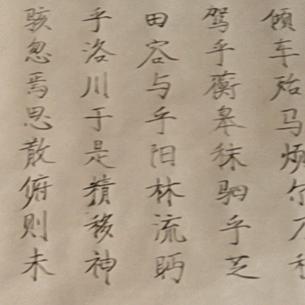 倾车殆马烦尔
驾乎蘅皋秣驷乎芝
田容与乎阳林流眄
乎洛川于是精移神
骇忽焉思散俯则未